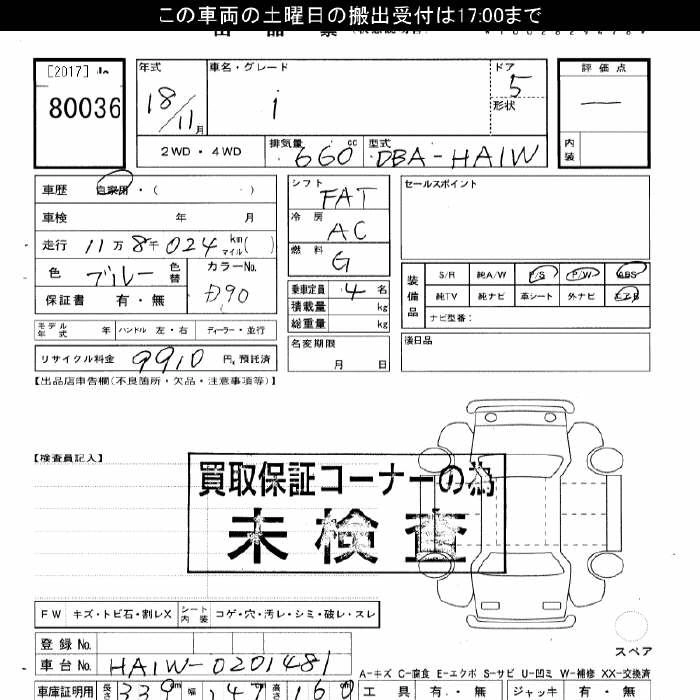 この車両の土曜日の搬出受付は17:00まで
[2017]
80036
年式 車名・グレード ドア 評価点
18/11月 i 5 —
形状
2WD・4WD 排気量 660 cc 型式 DBA-HA1W 内装
車歴 自家用・( )
車検 年 月
走行 11万8千024km マイル( )
色 ブルー 色替 カラーNo. D90
保証書 有・無
モデル年式 年 ハンドル 左・右 ディーラー・並行
リサイクル料金 9910円 預託済
シフト FAT
冷房 AC
燃料 G
乗車定員 4名
積載量 kg
総重量 kg
名変期限 月 日
セールスポイント
装備品 S/R 純A/W P/S P/W ABS
純TV 純ナビ 革シート 外ナビ エアB
ナビ型番:
後日品
【出品店申告欄(不良箇所・欠品・注意事項等)】
【検査員記入】
買取保証コーナーの為
未検査
FW キズ・トビ石・割レX シート内装 コゲ・穴・汚レ・シミ・破レ・スレ
スペア
登録No.
車台No. HA1W-0201481
A-キズ C-腐食 E-エクボ S-サビ U-凹ミ W-補修 XX-交換済
車庫証明用 長さ 339 幅 147 高さ 160 工具 有・無 ジャッキ 有・無